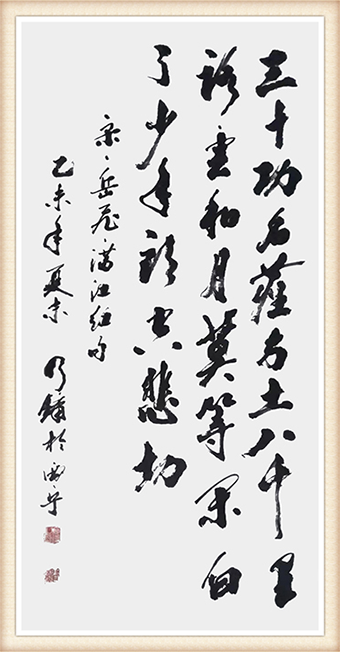 三十功名塵与土八千里
路雲和月莫等閑白
了少年頭空悲切
宋、岳飛滿江紅句
乙未年夏末 乃於